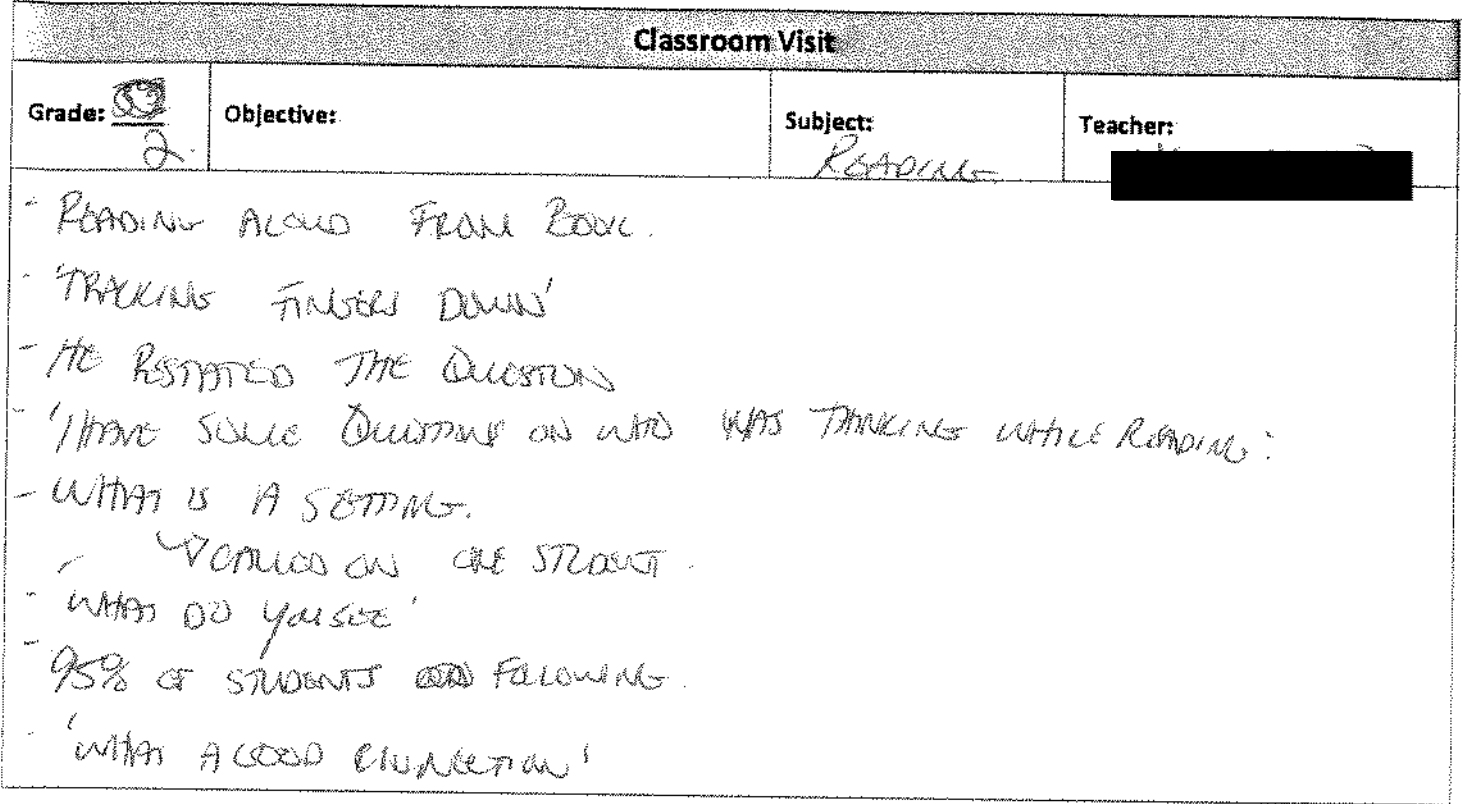 Classroom Visit
Grade: 2 Objective: Subject: READING Teacher:
- READING ALOUD FROM BOOK.
- 'TRACKING FINGERS DOWN'
- HE RESTATED THE QUESTION
- 'I HAVE SOME QUESTIONS ON WHO WAS THINKING WHILE READING:
- WHAT IS A SETTING.
CALLED ON ONE STUDENT.
- 'WHAT DO YOU SEE'
- 95% OF STUDENTS FOLLOWING.
- 'WHAT A GOOD CONNECTION'